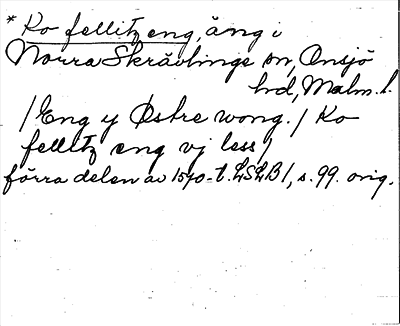 * Ko fellitz eng, äng i
Norra Skrävlinge sn, Onsjö
hd, Malm. l.
/Eng y Østre wong. / Ko
fellitz eng vj less/
förra delen av 1570-t. LSLB 1, s. 99. orig.